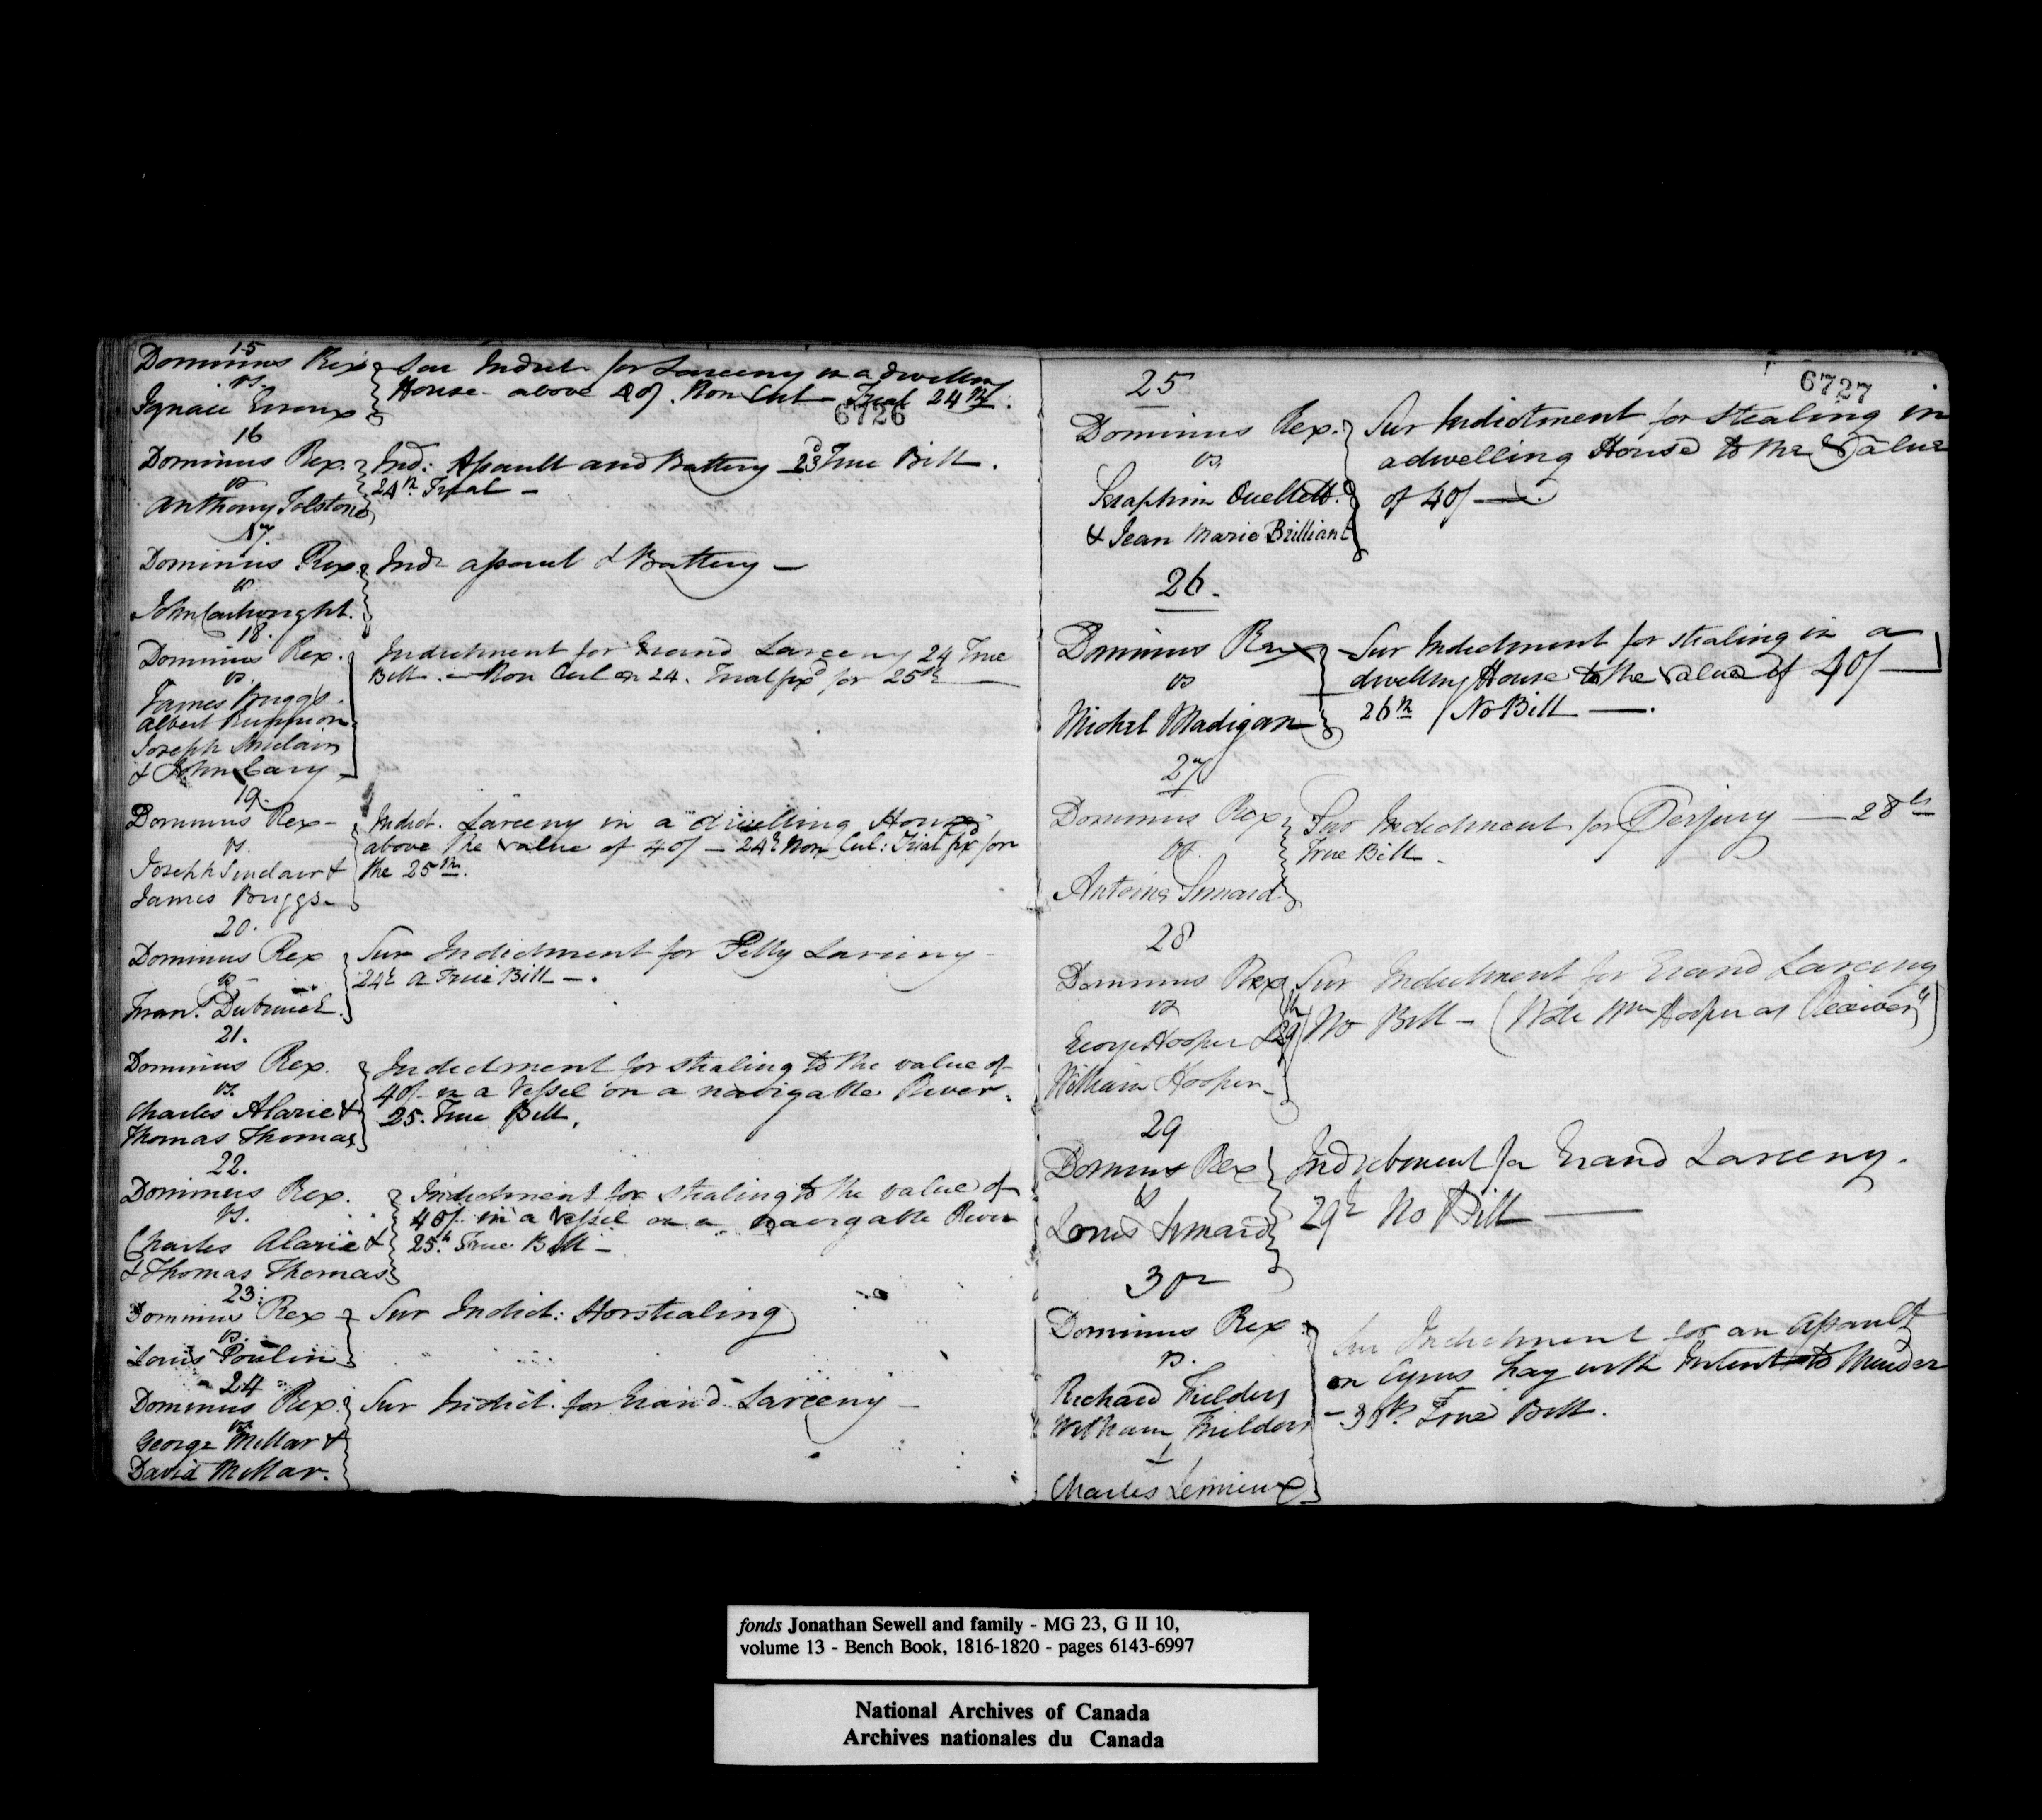 15
Dominus Rex
vs.
Ignace Giroux
Sur Indict. for Larceny in a dwelling
House above 40/. Non Cul – Trial 24th.
6726
16
Dominus Rex.
vs
Anthony Tolstone
Ind: Assault and Battery 23d True Bill.
24th Trial –
17.
Dominus Rex.
vs
John Cartwright.
Indt assault & Battery –
18.
Dominus Rex.
vs.
James Briggs.
Albert
Joseph Sinclair
& John Cary
Indictment for Grand Larceny 24 True
Bill. – Non Cul on 24. Trial fixd for 25th
19.
Dominus Rex –
vs.
Joseph Sinclair &
James Briggs.
Indict. Larceny in a dwelling House
above the value of 40/ – 24th Non Cul: Trial fixd for
the 25th.
20.
Dominus Rex
vs
Frans.
Sur Indictment for Petty Larceny –
24th a True Bill –.
21.
Dominus Rex.
vs.
Charles Alarie &
Thomas Thomas
Indictment for stealing to the value of
40/ in a Vessel on a navigable River.
25. True Bill.
22.
Dominus Rex.
vs.
Charles Alarie &
& Thomas Thomas
Indictment for stealing to the value of
40/ in a Vessel on a navigable River
25th True Bill –
23.
Dominus Rex
vs.
Louis Poulin
Sur Indict: Horstealing
24
Dominus Rex.
vs
George Millar &
David Millar.
Sur Indict. for Grand Larceny –
6727
25
Dominus Rex.
vs
Seraphim Ouellett.
& Jean Marie Brilliant
Sur Indictment for stealing in
a dwelling House to the Value
of 40/ —.
26.
Dominus Rex
vs
Michel Madigan
Sur Indictment for stealing in a
dwelling House to the value of 40/ —
26th No Bill —.
27
Dominus Rex
vs.
Antoine Simard
Sur Indictment for Perjury — 28th
True Bill –
28
Dominus Rex
vs
George Hooper &
William Hooper –
Sur Indictment for Grand Larceny
29th No Bill – (Note Wm Hooper as Receiver)
29
Dominus Rex
vs
Louis Simard
Indictment for Grand Larceny.
29th No Bill —
30
Dominus Rex
vs.
Richard Fielders
William Fielders
&
Charles Lemieux
Sur Indictment for an assault
on Cyrus Hay with Intent to Murder
– 30th True Bill.
fonds Jonathan Sewell and family - MG 23, G II 10,
volume 13 - Bench Book, 1816-1820 - pages 6143-6997
National Archives of Canada
Archives nationales du Canada